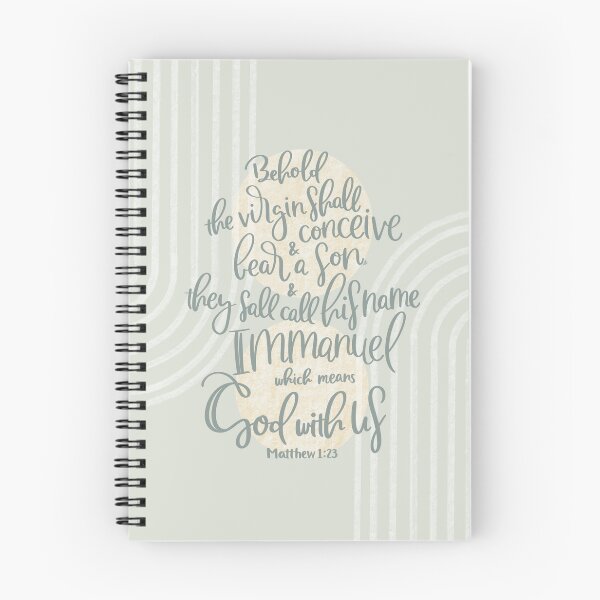 Behold
the virgin shall
conceive
&
bear a son,
&
they sall call his name
Immanuel
which means
God with us
Matthew 1:23